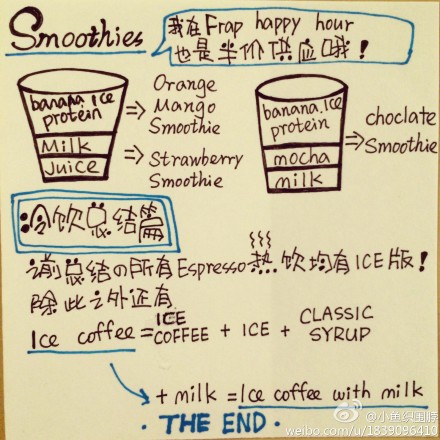 Smoothies
我在Frap happy hour
也是半价供应哦！
banana.ICE
protein
Milk
Juice
⇒ Orange
Mango
Smoothie
⇒ Strawberry
Smoothie
banana.ICE
protein
mocha
milk
⇒ choclate
Smoothie
冷饮总结篇
前总结の所有Espresso热饮均有ICE版！
除此之外还有
Ice coffee = ICE COFFEE + ICE + CLASSIC SYRUP
+ milk = Ice coffee with milk
· THE END ·
weibo.com/u/1839096410